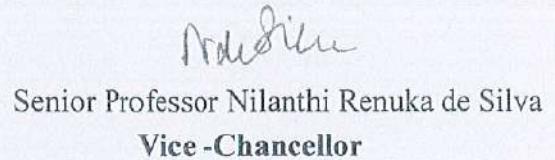 Senior Professor Nilanthi Renuka de Silva
Vice -Chancellor